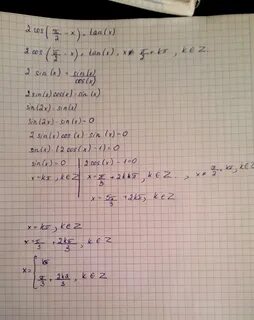 2cos(π/2 - x) = tan(x)
2cos(π/2 - x) = tan(x), x ≠ π/2 + kπ, k ∈ Z
2 sin(x) = sin(x)/cos(x)
2sin(x)cos(x) = sin(x)
sin(2x) = sin(x)
sin(2x) - sin(x) = 0
2sin(x)cos(x) - sin(x) = 0
sin(x) (2cos(x) - 1) = 0
sin(x) = 0 | 2cos(x) - 1 = 0
x = kπ, k ∈ Z | x = π/3 + 2kπ, k ∈ Z, x ≠ π/2 + kπ, k ∈ Z
x = 5π/3
x = kπ, k ∈ Z
x = π/3 + 2kπ/3, k ∈ Z
x = { kπ
π/3 + 2kπ/3, k ∈ Z